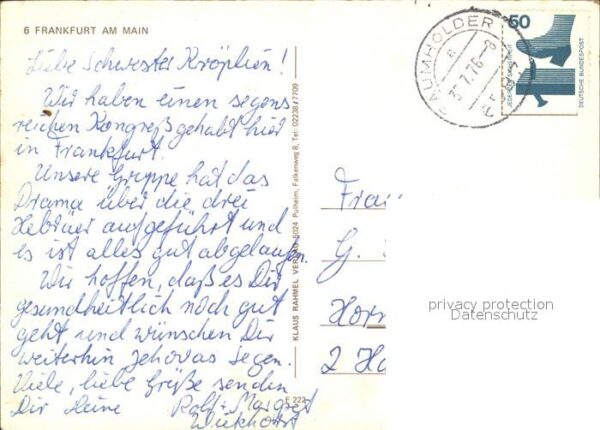 6 FRANKFURT AM MAIN
Liebe Schwester Kröplien!
Wir haben einen segens
reichen Kongreß gehabt hier
in Frankfurt.
Unsere Gruppe hat das
Drama über die drei
Hebräer aufgeführt und
es ist alles gut abgelaufen.
Wir hoffen, daß es Dir
gesundheitlich noch gut
geht und wünschen Dir
weiterhin Jehovas Segen.
Viele, liebe Grüße senden
Dir Deine Rolf + Margret
Wiekhorst
E 222
KLAUS RAHMEL VERLAG 5024 Pulheim, Falkenweg 8, Tel: 02238/7709
BAUMHOLDER
60
JEDERZEIT SICHERHEIT
DEUTSCHE BUNDESPOST
Frau
G.
Horn
2 Ha
privacy protection
Datenschutz